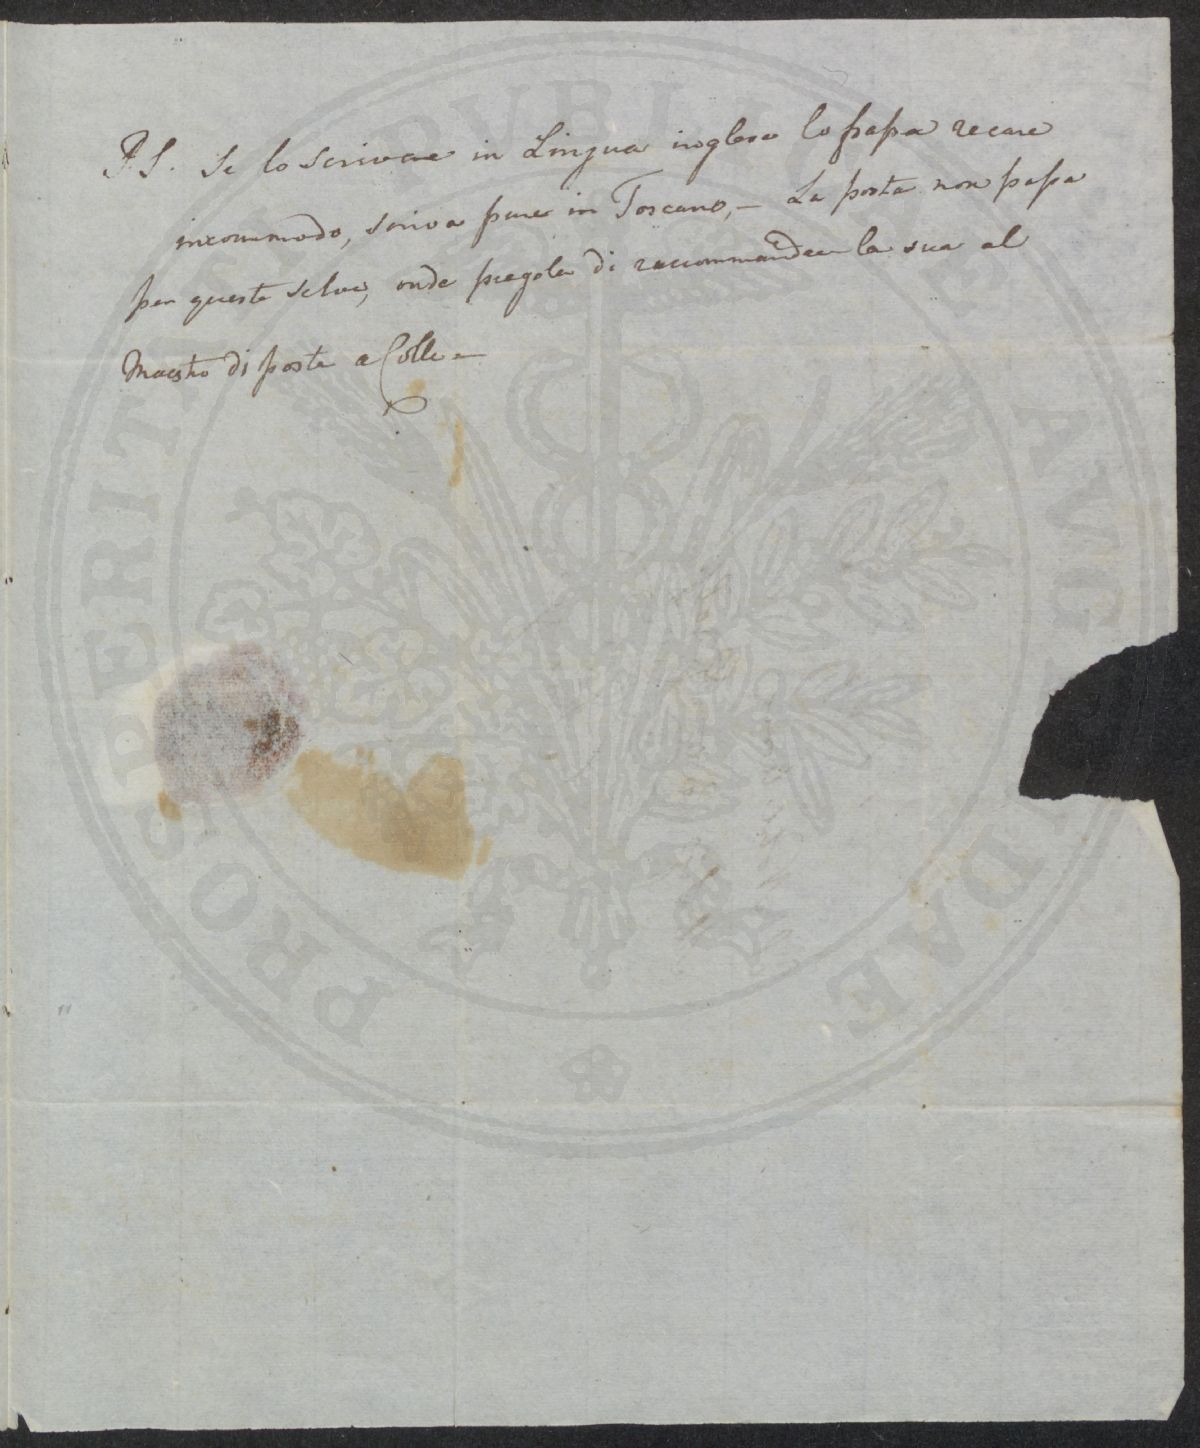 P.S. Se lo scrivere in Lingua inglese le possa recare
incommodo, scriva pure in Toscano, — La posta non passa
per queste selve, onde pregola di raccommandar la sua al
Maestro di posta a Colle —
PROSPERITATI PVBLICAE AVGENDAE